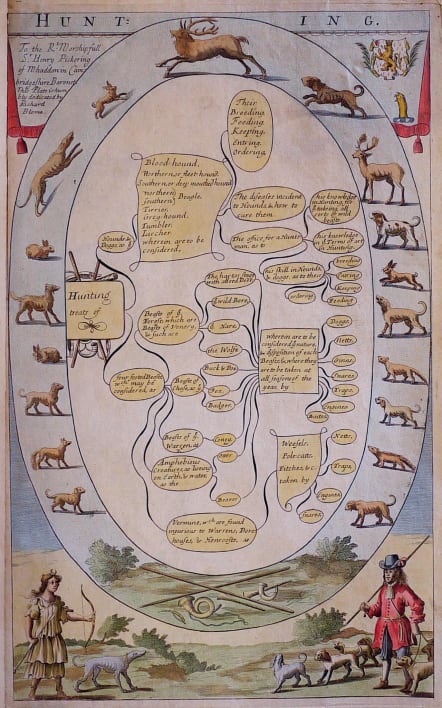 HUNT: ING.
To the Rt. Worshipfull
Sr. Henry Pickering
of Whaddon in Cam=
bridgeshire Baronet
This Plate is hum=
bly dedicated by
Richard
Blome.
Their
Breeding
Feeding
Keeping.
Entring.
Ordering.
Blood hound,
Northern or fleet hound
Southern or deep mouthed hound
northern
Southern
Beagle.
Tirrier,
Grey hound,
Tumbler,
Lurcher
wherein are to be
considered,
The diseases incident
to Hounds & how to
cure them.
his knowledge
in Hunting, for
& taking all
sorts of wild
beasts
The office for a Hunts=
man, as to
his knowledge
in ye Terms of art
in Hunting.
Hounds &
Dogs as
his skill in Hounds,
& dogs, as to their
breeding
Curing
Keeping
feeding
ordering
Hunting
treats of
Beasts of ye
Forest, which are
Beasts of Venery,
& such are
The hart or Stag
with all red Deer
wild Bore,
Hare,
the Wolfe
four footed Beasts
wch. may be
considered, as
Beasts of
Chase, as ye
Buck & Doe
Fox,
Badger,
wherein are to be
considered ye nature,
& disposition of each
Beast, & where they
are to be taken at
all seasons of the
year by
Doggs,
Netts,
Gunns,
Snares
Traps,
Engines
Baites
Beasts of ye
Warren, as
Coney
Amphibious
Creatures, as living
on Earth, & water,
as the
otter
Beaver
Weesels,
Pole-cats,
Fitches, &c.
taken by
Netts,
Traps,
Engines,
Snares,
Vermine, wch. are found
injurious to Warrens, Dove
houses, & Henroosts, as